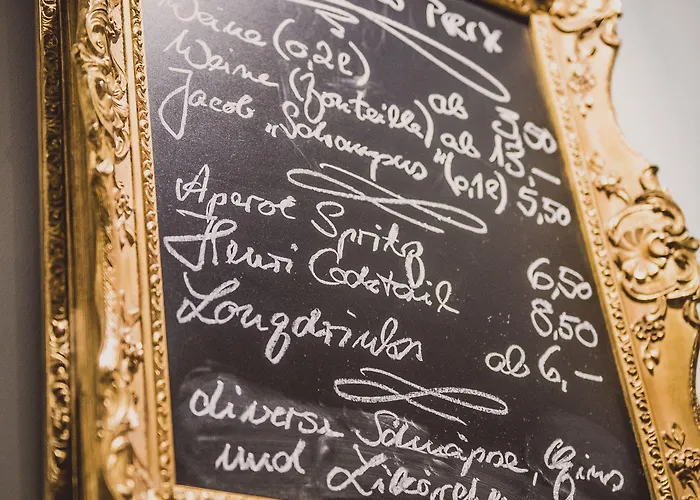 PRIX
Weine (0,2l) ab 3,50
Weine (Bouteille) ab 13,–
Jacob „Schampus" (0,1l) 5,50
Aperol Spritz 6,50
Henri Cocktail 8,50
Longdrinks ab 6,–
diverse Schnäpse, Gins
und Liköre